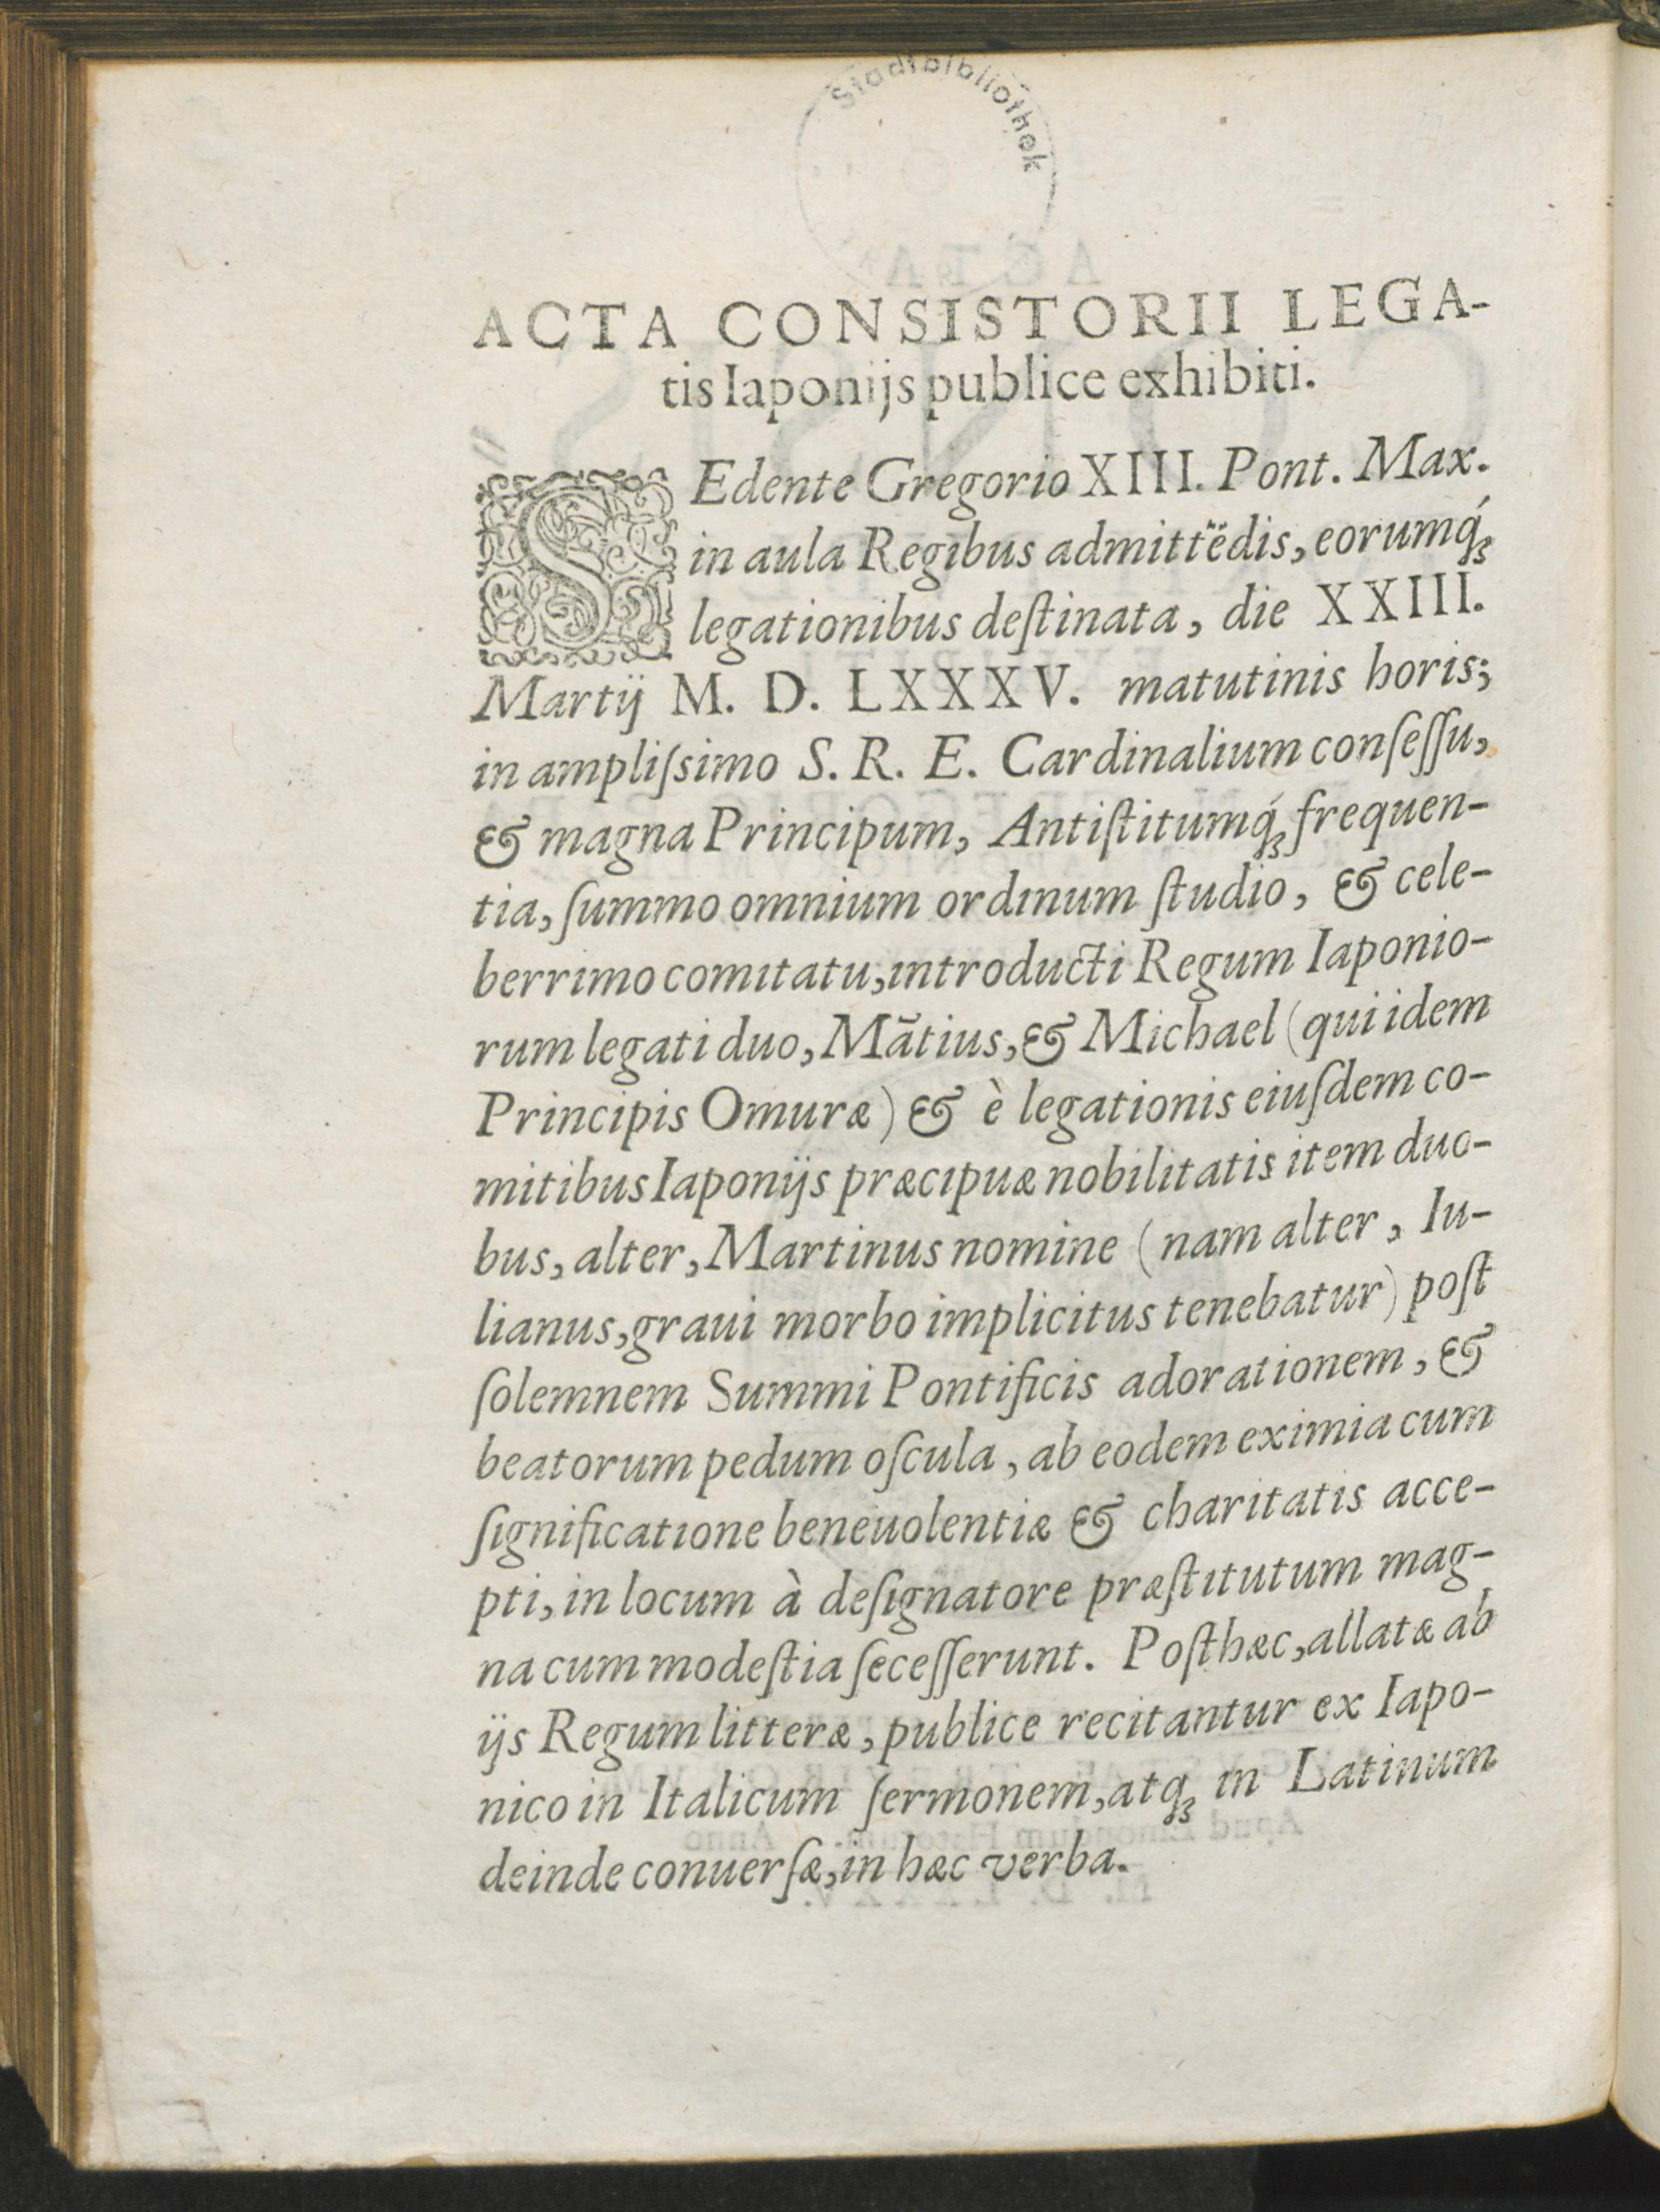 Stadtbibliothek
ACTA CONSISTORII LEGA-
tis Iaponijs publice exhibiti.
SEdente Gregorio XIII. Pont. Max.
in aula Regibus admittẽdis, eorumq́ꝫ
legationibus deſtinata, die XXIII.
Martij M. D. LXXXV. matutinis horis;
in ampliſsimo S. R. E. Cardinalium conſeſſu,
& magna Principum, Antiſtitumq́ꝫ frequen-
tia, ſummo omnium ordinum ſtudio, & cele-
berrimo comitatu, introducti Regum Iaponio-
rum legati duo, Mãtius, & Michael (qui idem
Principis Omuræ) & è legationis eiuſdem co-
mitibus Iaponijs præcipuæ nobilitatis item duo-
bus, alter, Martinus nomine (nam alter, Iu-
lianus, graui morbo implicitus tenebatur) poſt
ſolemnem Summi Pontificis adorationem, &
beatorum pedum oſcula, ab eodem eximia cum
ſignificatione beneuolentiæ & charitatis acce-
pti, in locum à deſignatore præſtitutum mag-
na cum modeſtia ſeceſſerunt. Poſt hæc, allatæ ab
ijs Regum litteræ, publice recitantur ex Iapo-
nico in Italicum ſermonem, atqꝫ in Latinum
deinde conuerſæ, in hæc verba.